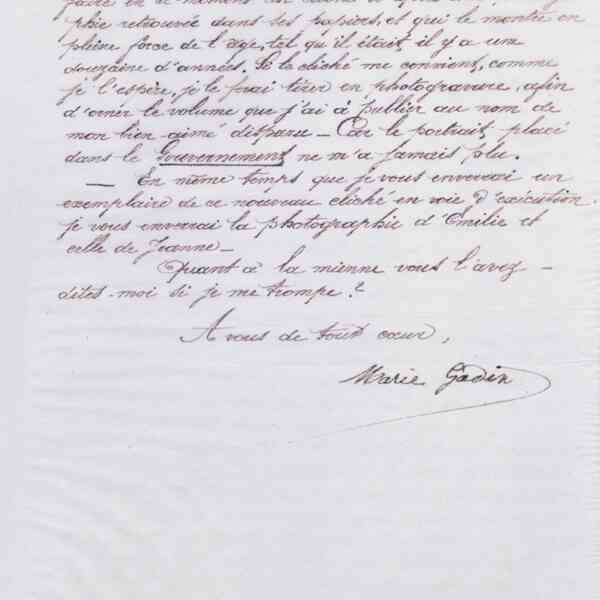 faire en ce moment un cliché d'après une
phie retrouvée dans ses papiers, et qui le montre en
pleine force de l'âge, tel qu'il était, il y a une
douzaine d'années. Si le cliché me convient, comme
je l'espère, je le ferai tirer en photogravure, afin
d'orner le volume que j'ai à publier au nom de
mon bien aimé disparu _ Car le portrait, placé
dans le Gouvernement, ne m'a jamais plu.
_ En même temps que je vous enverrai un
exemplaire de ce nouveau cliché en voie d'exécution,
je vous enverrai la photographie d'Emilie et
celle de Jeanne _
Quant à la mienne vous l'avez _
dites-moi si je me trompe ?
A vous de tout cœur,
Marie Godin